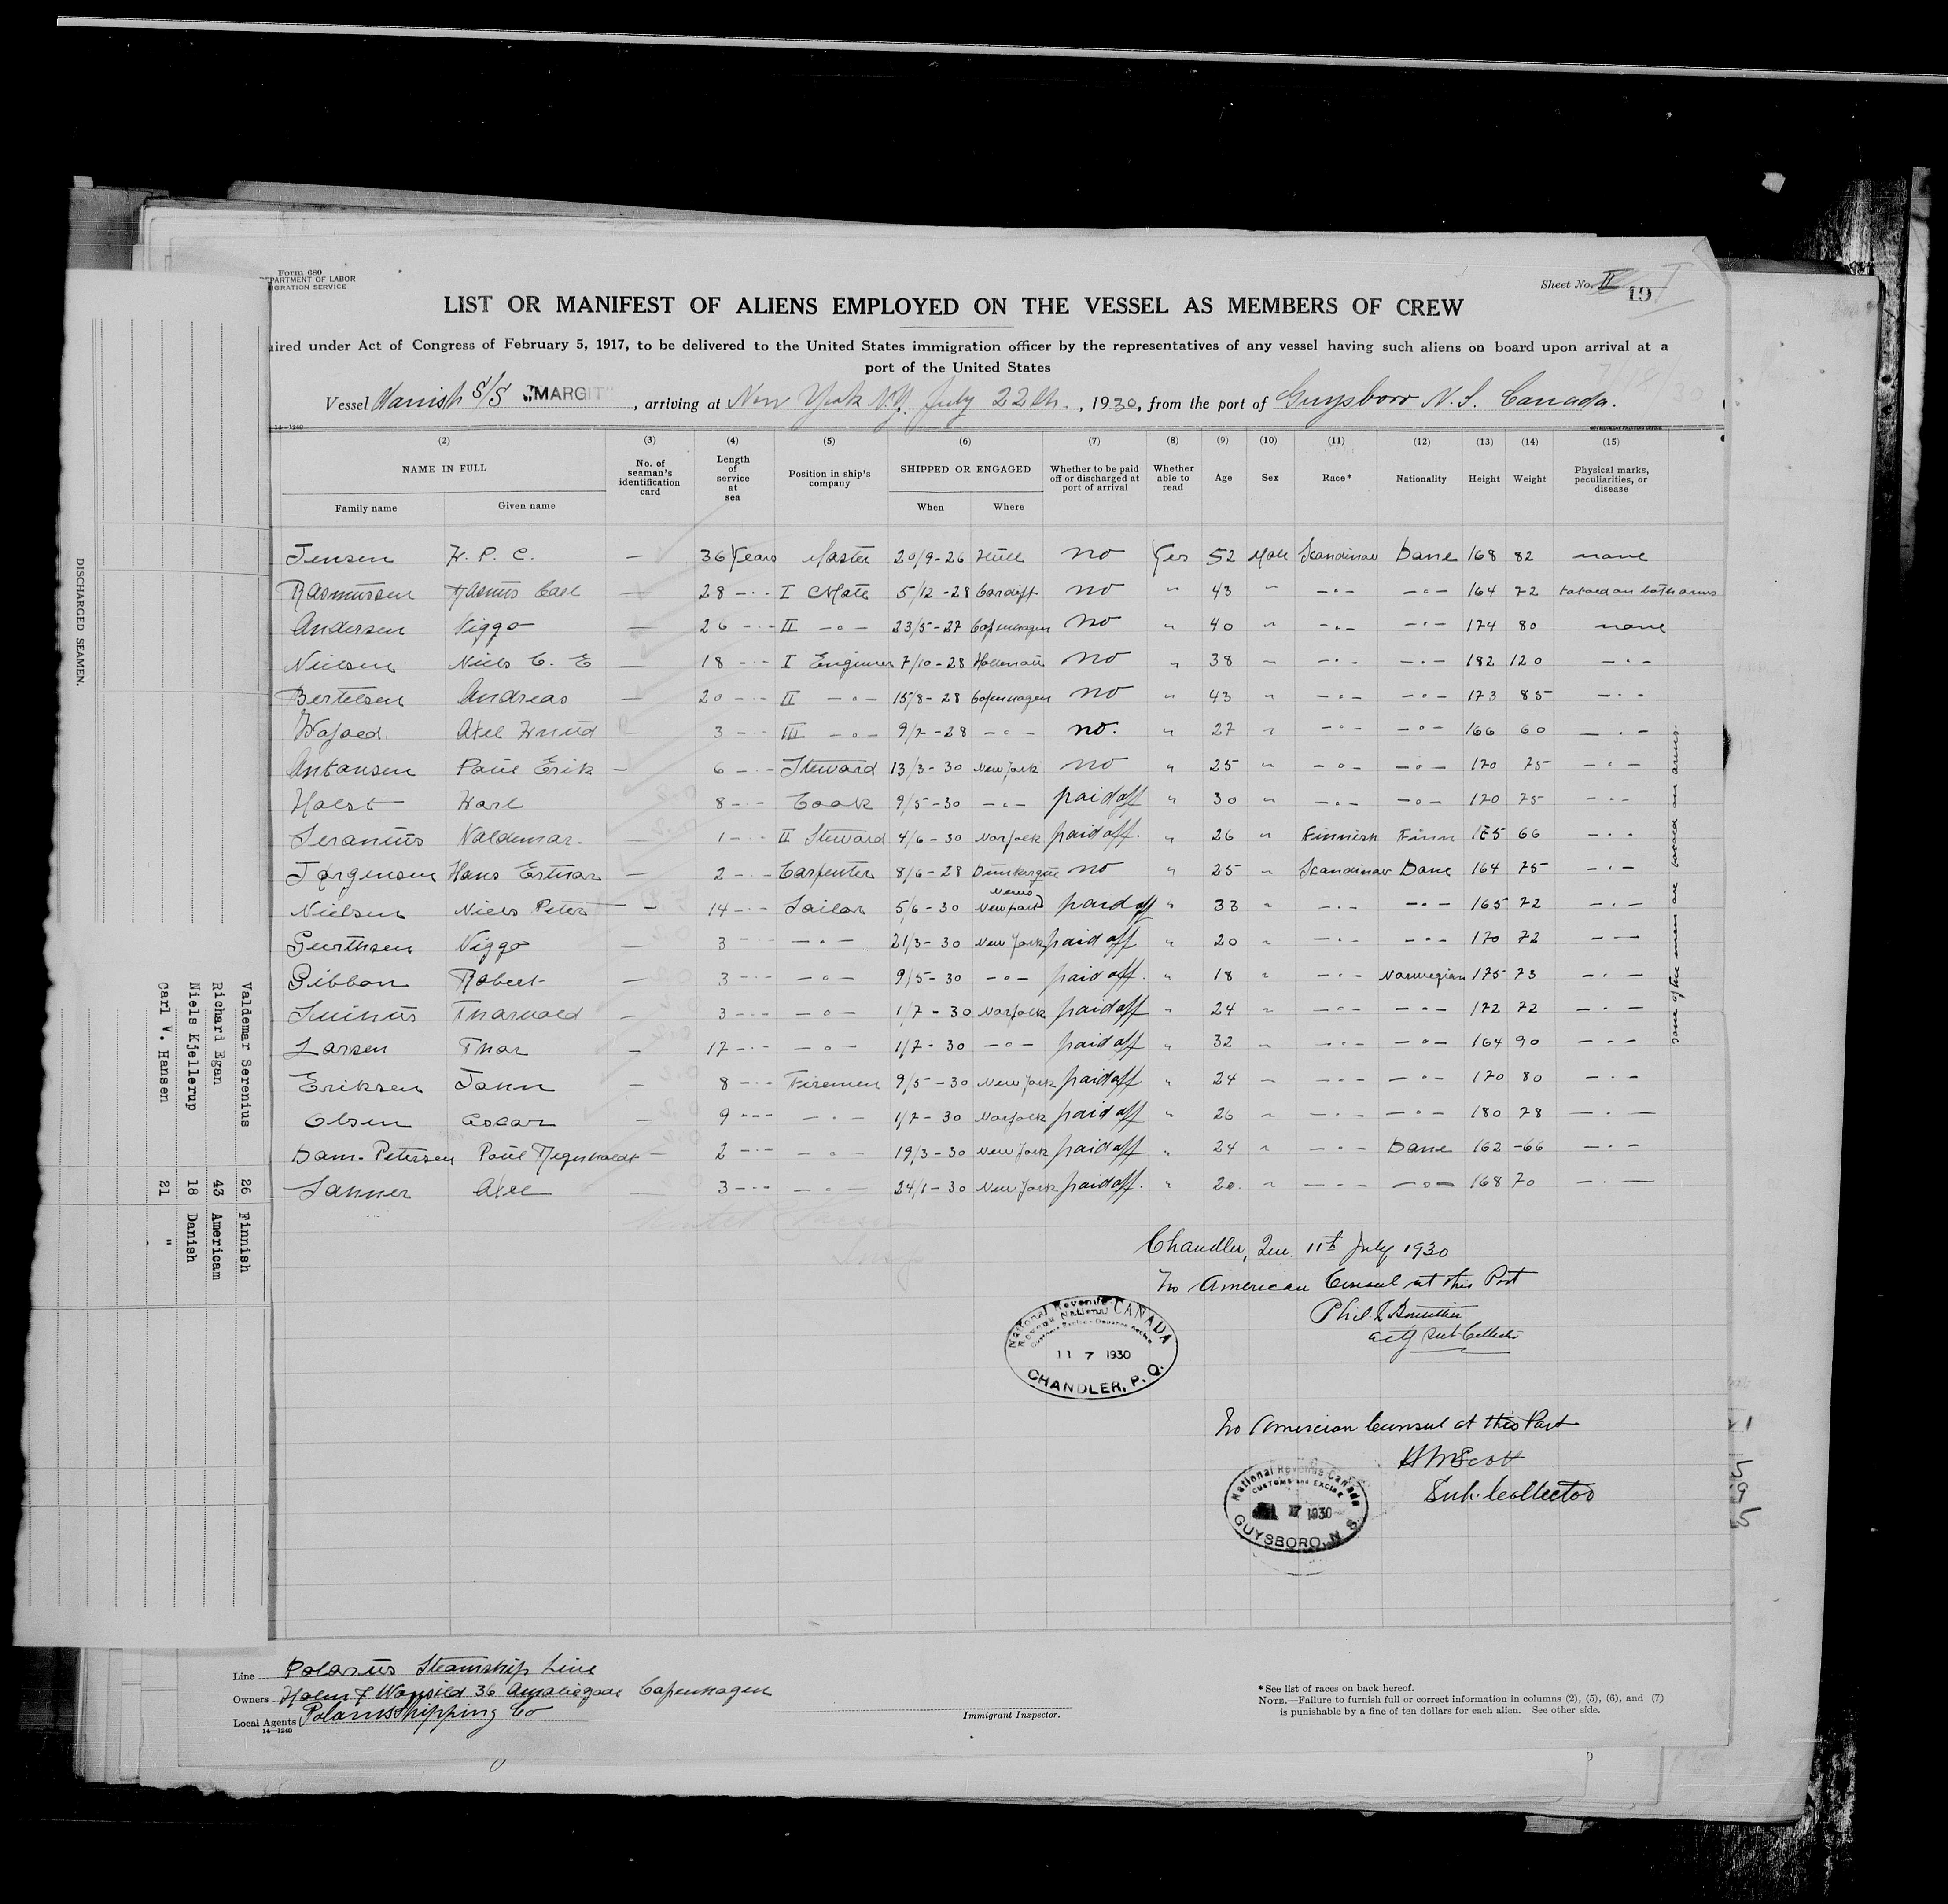 Form 680
DEPARTMENT OF LABOR
IMMIGRATION SERVICE
Sheet No. II 19 I
LIST OR MANIFEST OF ALIENS EMPLOYED ON THE VESSEL AS MEMBERS OF CREW
ired under Act of Congress of February 5, 1917, to be delivered to the United States immigration officer by the representatives of any vessel having such aliens on board upon arrival at a
port of the United States
Vessel Danish S/S "MARGIT", arriving at New York N.Y. July 22th., 1930, from the port of Guysboro N.S. Canada.
14—1240
(2) (3) (4) (5) (6) (7) (8) (9) (10) (11) (12) (13) (14) (15)
NAME IN FULL No. of seaman's identification card Length of service at sea Position in ship's company SHIPPED OR ENGAGED Whether to be paid off or discharged at port of arrival Whether able to read Age Sex Race* Nationality Height Weight Physical marks, peculiarities, or disease
Family name Given name When Where
Jensen H. P. C. — 36 Years Master 20/9-26 Hull no Yes 52 Male Scandinav Dane 168 82 none
Rasmussen Rasmus Carl — 28 -·- I Mate 5/12-28 Cardiff no " 43 " -·- -·- 164 72 tatoed on both arms
Andersen Viggo — 26 -·- II -·- 23/5-27 Copenhagen no " 40 " -·- -·- 174 80 none
Nielsen Niels C. E — 18 -·- I Engineer 7/10-28 Holtenau no " 38 " -·- -·- 182 120 -·-
Bertelsen Andreas — 20 -·- II -·- 15/8-28 Copenhagen no " 43 " -·- -·- 173 85 -·-
Axel Knud 3 -·- III -·- 9/2-28 -·- no. " 27 " -·- -·- 166 60 -·-
Antonsen Poul Erik — 6 -·- Steward 13/3-30 New York no " 25 " -·- -·- 170 75 -·-
Holst Karl 8 -·- Cook 9/5-30 -·- paid off " 30 " -·- -·- 170 75 -·-
Seranius Valdemar. — 1 -·- II Steward 4/6-30 Norfolk paid off. " 26 " Finnish Finn 165 66 -·-
Jørgensen Hans Ertmar — 2 -·- Carpenter 8/6-28 Dunkerque no " 25 " Scandinav Dane 164 75 -·-
Nielsen Niels Peter — 14 -·- Sailor 5/6-30 Newport News paid off " 33 " -·- -·- 165 72 -·-
Viggo — 3 -·- -·- 21/3-30 New York paid off " 20 " -·- -·- 170 72 -·-
Gibbon Robert — 3 -·- -·- 9/5-30 -·- paid off. " 18 " -·- Norwegian 175 73 -·-
Thorvald — 3 -·- -·- 1/7-30 Norfolk paid off " 24 " -·- -·- 172 72 -·-
Larsen Thor — 17 -·- -·- 1/7-30 -·- paid off " 32 " -·- -·- 164 90 -·-
Eriksen John — 8 -·- Firemen 9/5-30 New York paid off " 24 " -·- -·- 170 80 -·-
Olsen Oscar 9 -·- -·- 1/7-30 Norfolk paid off " 26 " -·- -·- 180 78 -·-
Dam-Petersen Poul Regnhaldt — 2 -·- -·- 19/3-30 New York paid off " 24 " -·- Dane 162 -66 -·-
Sanner Axel 3 -·- -·- 24/1-30 New York paid off. " 20. " -·- -·- 168 70 -·-
some of the men are tatoed on arms.
Chandler, Que. 11th July 1930
No American Consul at this Port
actg Sub-Collector
National Revenue CANADA
Revenu National
11 7 1930
CHANDLER, P. Q.
No Amercian Consul at this Port
H M Scott
Sub. Collector
National Revenue Canada
CUSTOMS and EXCISE
17 1930
GUYSBORO, N. S.
DISCHARGED SEAMEN.
Valdemar Serenius 26 Finnish
Richard Egan 43 Americam
Niels Kjellerup 18 Danish
Carl V. Hansen 21 "
Line Polarius Steamship Line
Owners Holm & Wonsild 36 Amaliegade Copenhagen
Local Agents Polarus Shipping Co
14—1240
Immigrant Inspector.
*See list of races on back hereof.
NOTE.—Failure to furnish full or correct information in columns (2), (5), (6), and (7)
is punishable by a fine of ten dollars for each alien. See other side.